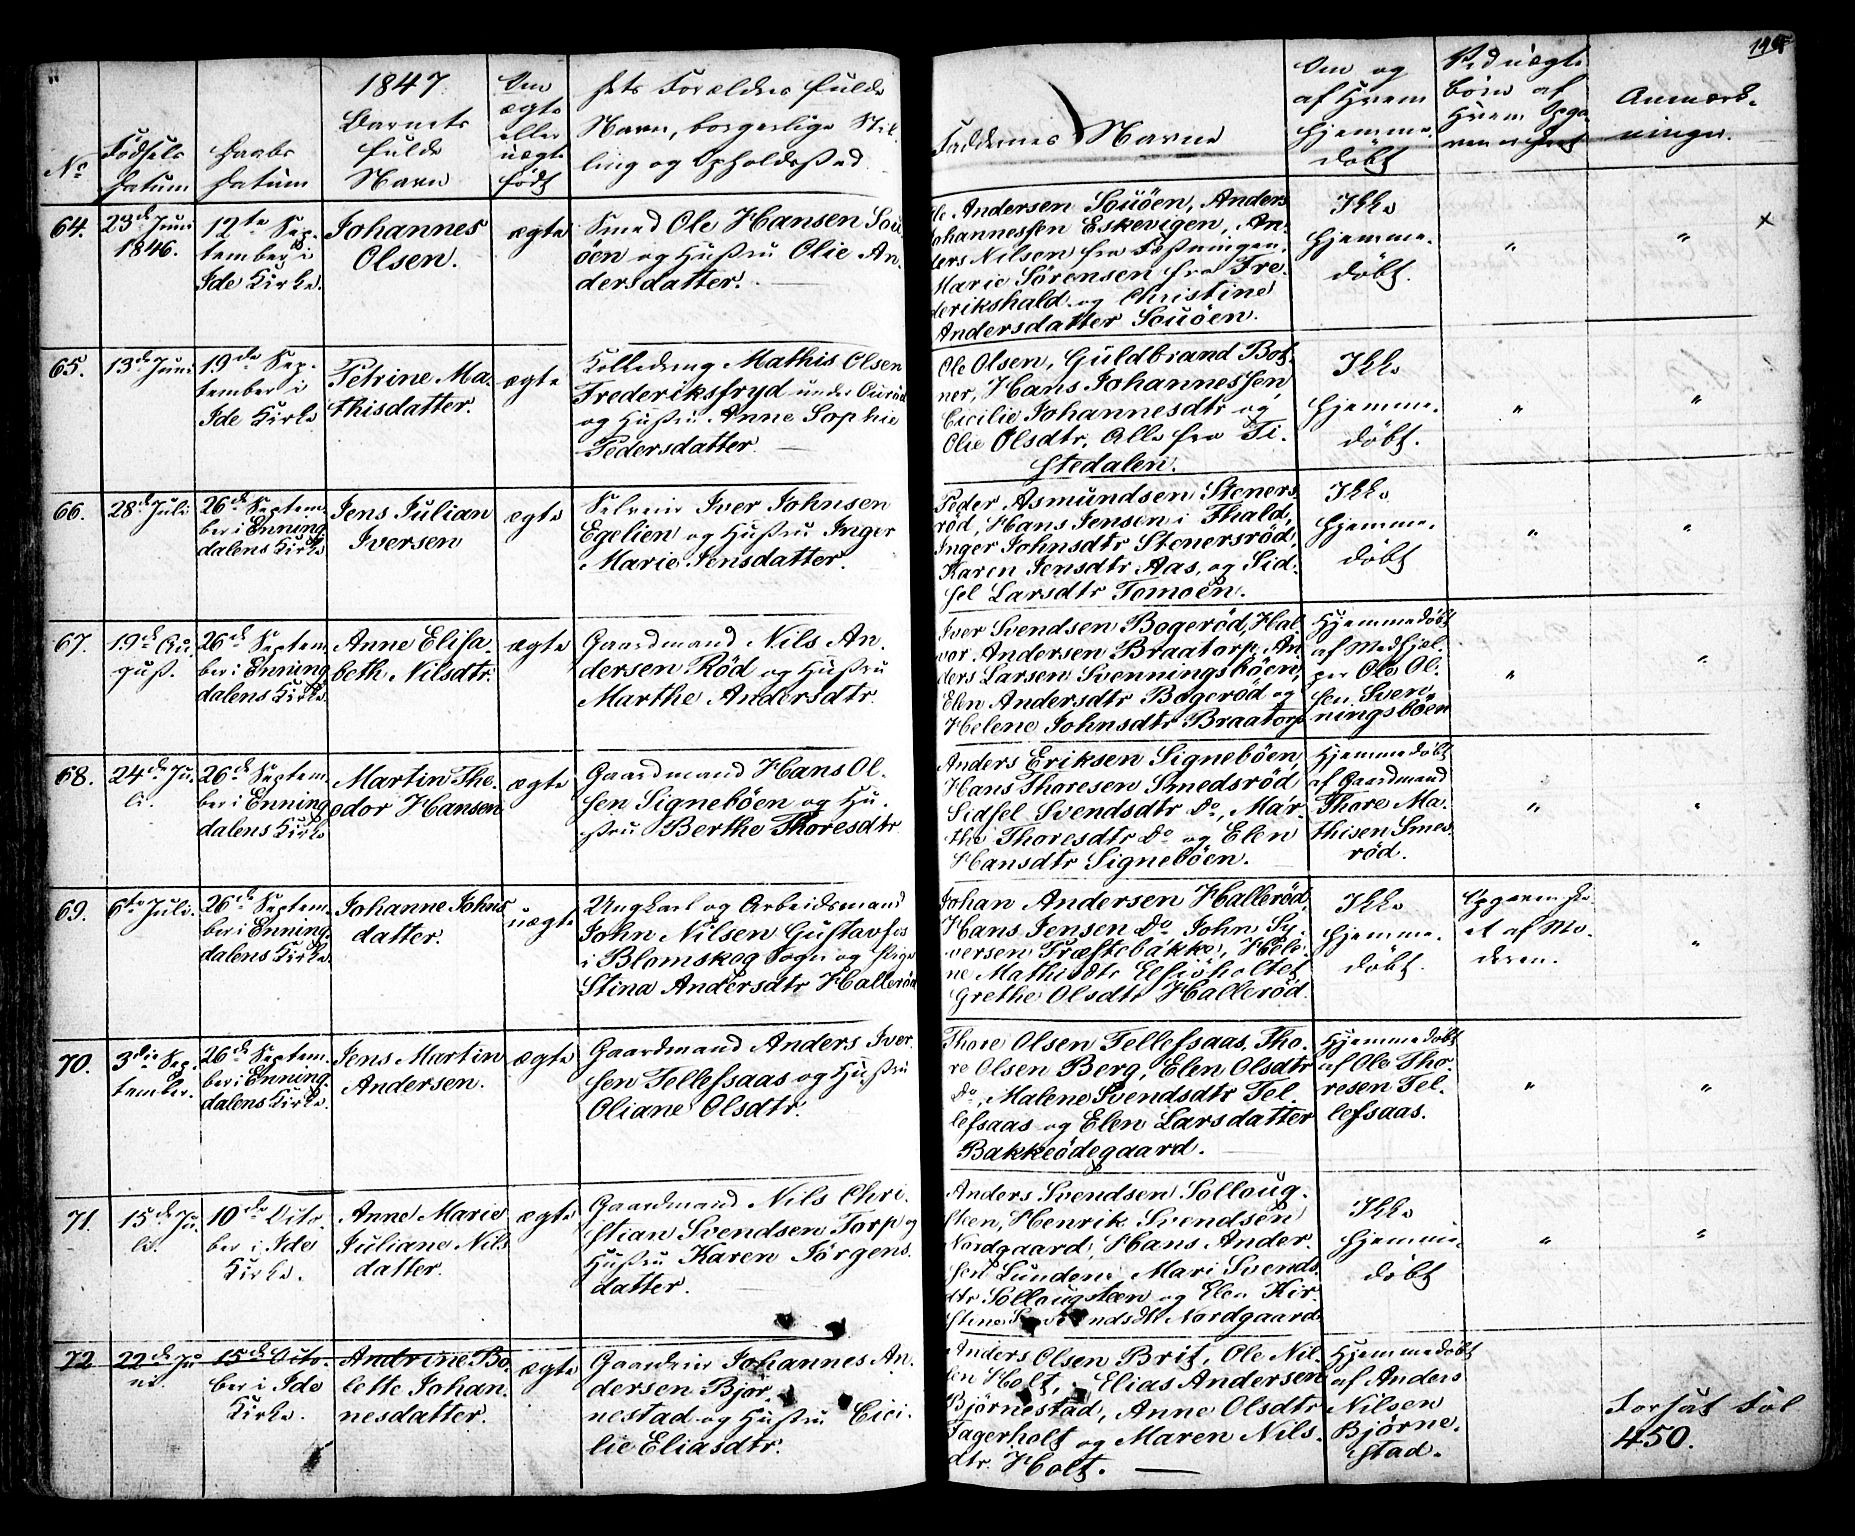 1847
No
Fødsels
Datum
Daabs
Datum
Barnets
fulde
Navn
Om
ægte
eller
uægte
født
Dets Forældres fulde
Navn, borgerlige Stil-
ling og Opholdssted
Faddernes Navne
Om og
af Hvem
hjemme-
døbt
Ved uægte
Børn af
Hvem
Anmærk-
ninger.
64.
23de Juni
1846.
12te Sep-
tember i
Ide Kirke.
Johannes
Olsen.
ægte
Smed Ole Hansen Sou-
öen og Hustru Olie An-
dersdatter.
Ole Andersen Souöen, Anders
Johannessen Eskevigen, An-
ders Nilsen fra Fæstningen,
Marie Sörensen fra Fre-
derikshald og Christine
Andersdatter Souöen.
Ikke
hjemme-
döbt.
"
"
65.
13de Juni
19de Sep-
tember i
Ide Kirke
Petrine Ma-
thisdatter.
ægte
Mathis Olsen
Frederiksfryd under
og Hustru Anne Sophie
Pedersdatter.
Ole Olsen, Guldbrand Bot-
ner, Hans Johannessen,
Cicilie Johannesdtr og
Olie Olsdtr, Alle fra Ti-
stedalen.
Ikke
hjemme-
döbt.
"
"
66.
28de Juli
26de Septem-
ber i Enning-
dalens Kirke
Jens Julian
Iversen
ægte
Selveier Iver Johnsen
Egelien og Hustru Inger
Marie Jensdatter.
Peder Asmundsen Steners-
röd, Hans Jensen i Fhald,
Inger Johnsdtr Stenersröd
Karen Jensdtr Aas, og Sid-
sel Larsdtr Tomoen.
Ikke
hjemme-
döbt
"
"
67.
19de Au-
gust.
26de Septem-
ber i Enning-
dalens Kirke.
Anne Elisa-
beth Nilsdtr.
ægte
Gaardmand Nils An-
dersen Röd og Hustru
Marthe Andersdtr.
Iver Svendsen Bogeröd, Hal-
vor Andersen Braatorp, An-
ders Larsen Svenningsböen,
Elen Andersdtr Bogeröd og
Helene Johnsdtr Braatorp
Hjemmedöbt
af Medhjæl-
per Ole Ol-
sen Sven-
ningsböen
"
"
68.
24de Ju-
li.
26de Septem-
ber i Enning-
dalens Kirke
Martin The-
odor Hansen
ægte
Gaardmand Hans Ol-
sen Signeböen og Hu-
stru Berthe Thoresdtr
Anders Eriksen Signeböen,
Hans Thoresen Smedsröd
Sidsel Svendsdtr Do, Mar-
the Thoresdtr Do og Elen
Hansdtr Signeböen.
Hjemmedöbt
af Gaardmand
Thore Ma-
thisen Smes-
röd.
"
"
69.
6te Juli.
26de Septem-
ber i Enning-
dalens Kirke.
Johanne Johns-
datter.
uægte
Ungkarl og Arbeidsmand
John Nilsen Gustavfos
i Blomskog Sogn og Pige
Stina Andersdtr Halleröd
Johan Andersen Halleröd,
Hans Jensen Do, John Sy-
versen Præstebakke, Hele-
ne Mathisdtr
Grethe Olsdtr Halleröd.
Ikke
hjemme-
döbt.
Opgaven ske-
et af Mo-
deren.
"
70.
3die Sep-
tember.
26de Septem-
ber i Enning-
dalens Kirke.
Jens Martin
Andersen.
ægte
Gaardmand Anders Iver-
sen Tellefsaas og Hustru
Oliane Olsdtr.
Thore Olsen Tellefsaas, Tho-
re Olsen Berg, Elen Olsdtr
Do, Malene Svendsdtr Tel-
lefsaas og Elen Larsdatter
Bakkeödegaard.
Hjemmedöbt
af Ole Tho-
resen Tel-
lefsaas.
"
"
71.
15de Ju-
li.
10de Octo-
ber i Ide
Kirke.
Anne Marie
Juliane Nils-
datter.
ægte
Gaardmand Nils Chri-
stian Svendsen Torp og
Hustru Karen Jörgens-
datter.
Anders Svendsen Solloug-
steen, Henrik Svendsen
Nordgaard, Hans Ander-
sen Lunden, Mari Svends-
dtr Sollougsteen og Elen Kir-
stine Svendsdtr Nordgaard.
Ikke
hjemme-
döbt
"
"
72
22de Ju-
ni.
15de Octo-
ber i Ide
Kirke.
Andrine Bo-
lette Johan-
nesdatter.
ægte
Gaardeier Johannes An-
dersen Bjør-
nestad og Hustru Cici-
lie Eliasdtr.
Anders Olsen Brit, Ole Nil-
sen Holt, Elias Andersen
Björnestad, Anne Olsdtr
Fagerholt og Maren Nils-
dtr. Holt.
Hjemmedöbt
af Anders
Nilsen
Björne-
stad.
Forsat Fol
450.